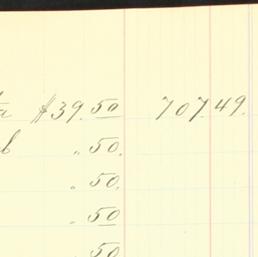 $39.50 707.49.
b " .50.
" .50.
" .50
.50